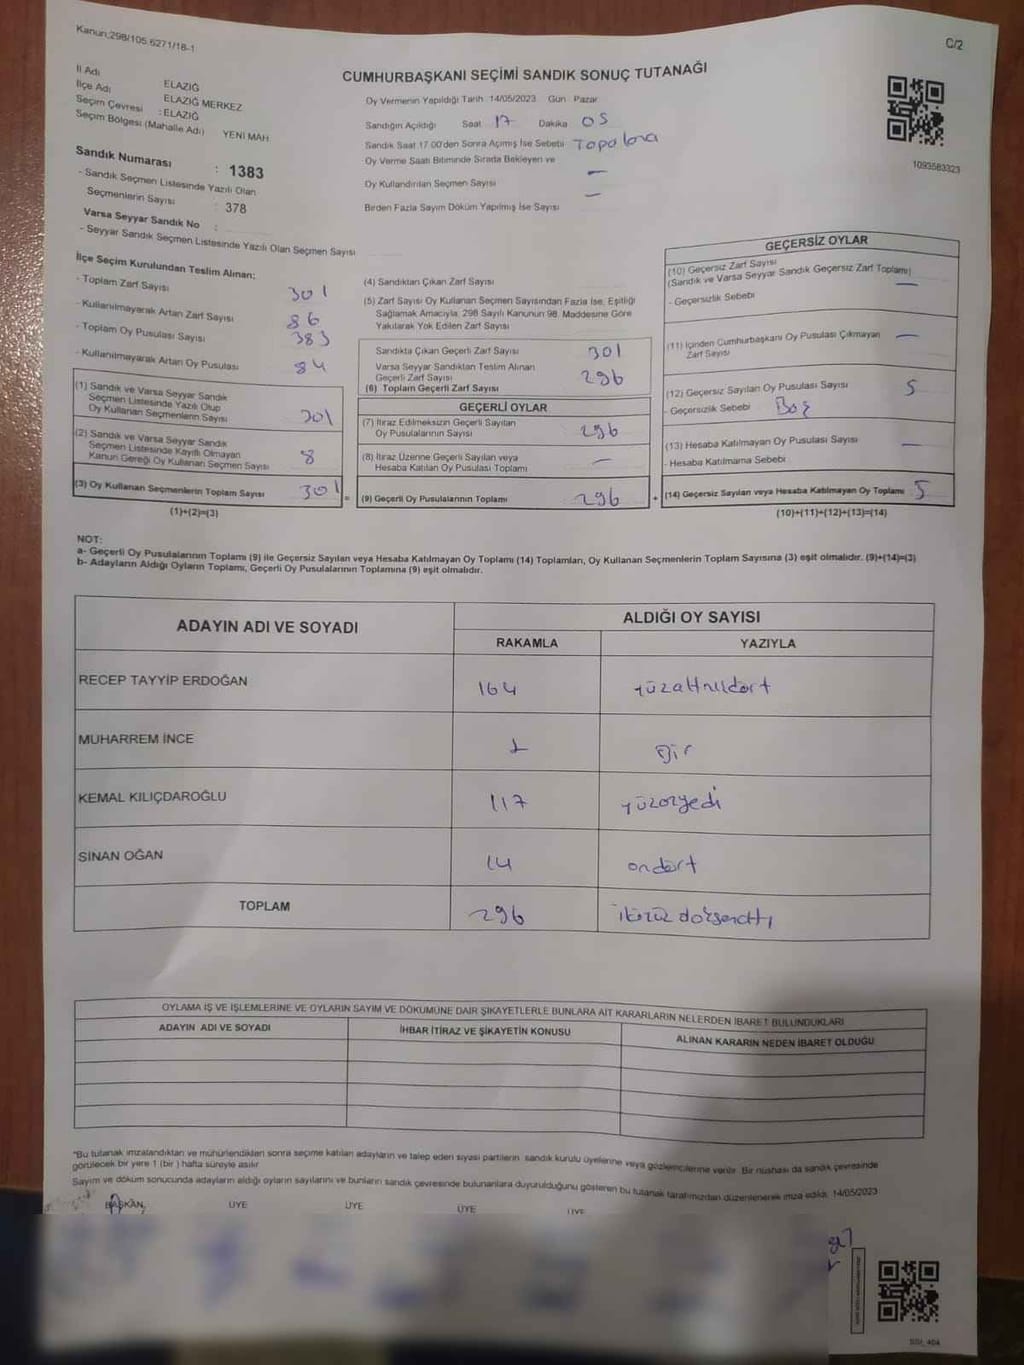 Kanun:298/105,6271/18-1
C/2
CUMHURBAŞKANI SEÇİMİ SANDIK SONUÇ TUTANAĞI
İl Adı ELAZIĞ
İlçe Adı ELAZIĞ MERKEZ
Seçim Çevresi : ELAZIĞ
Seçim Bölgesi (Mahalle Adı) YENİ MAH
Sandık Numarası : 1383
- Sandık Seçmen Listesinde Yazılı Olan
Seçmenlerin Sayısı : 378
Varsa Seyyar Sandık No :
- Seyyar Sandık Seçmen Listesinde Yazılı Olan Seçmen Sayısı
Oy Vermenin Yapıldığı Tarih 14/05/2023 Gün Pazar
Sandığın Açıldığı Saat 17 Dakika 05
Sandık Saat 17.00'den Sonra Açılmış İse Sebebi
Oy Verme Saati Bitiminde Sırada Bekleyen ve
Oy Kullandırılan Seçmen Sayısı —
Birden Fazla Sayım Döküm Yapılmış İse Sayısı —
1093583323
İlçe Seçim Kurulundan Teslim Alınan;
- Toplam Zarf Sayısı 301
- Kullanılmayarak Artan Zarf Sayısı 86
- Toplam Oy Pusulası Sayısı 383
- Kullanılmayarak Artan Oy Pusulası 84
(1) Sandık ve Varsa Seyyar Sandık
Seçmen Listesinde Yazılı Olup
Oy Kullanan Seçmenlerin Sayısı 301
(2) Sandık ve Varsa Seyyar Sandık
Seçmen Listesinde Kayıtlı Olmayan
Kanun Gereği Oy Kullanan Seçmen Sayısı 8
(3) Oy Kullanan Seçmenlerin Toplam Sayısı 301 =
(1)+(2)=(3)
(4) Sandıktan Çıkan Zarf Sayısı
(5) Zarf Sayısı Oy Kullanan Seçmen Sayısından Fazla İse, Eşitliği
Sağlamak Amacıyla, 298 Sayılı Kanunun 98. Maddesine Göre
Yakılarak Yok Edilen Zarf Sayısı
Sandıkta Çıkan Geçerli Zarf Sayısı 301
Varsa Seyyar Sandıktan Teslim Alınan
Geçerli Zarf Sayısı 296
(6) Toplam Geçerli Zarf Sayısı
GEÇERLİ OYLAR
(7) İtiraz Edilmeksizin Geçerli Sayılan
Oy Pusulalarının Sayısı 296
(8) İtiraz Üzerine Geçerli Sayılan veya
Hesaba Katılan Oy Pusulası Toplamı —
(9) Geçerli Oy Pusulalarının Toplamı 296 +
GEÇERSİZ OYLAR
(10) Geçersiz Zarf Sayısı
(Sandık ve Varsa Seyyar Sandık Geçersiz Zarf Toplamı) —
- Geçersizlik Sebebi
(11) İçinden Cumhurbaşkanı Oy Pusulası Çıkmayan
Zarf Sayısı —
(12) Geçersiz Sayılan Oy Pusulası Sayısı 5
- Geçersizlik Sebebi Boş
(13) Hesaba Katılmayan Oy Pusulası Sayısı —
- Hesaba Katılmama Sebebi
(14) Geçersiz Sayılan veya Hesaba Katılmayan Oy Toplamı 5
(10)+(11)+(12)+(13)=(14)
NOT:
a- Geçerli Oy Pusulalarının Toplamı (9) ile Geçersiz Sayılan veya Hesaba Katılmayan Oy Toplamı (14) Toplamları, Oy Kullanan Seçmenlerin Toplam Sayısına (3) eşit olmalıdır. (9)+(14)=(3)
b- Adayların Aldığı Oyların Toplamı, Geçerli Oy Pusulalarının Toplamına (9) eşit olmalıdır.
ADAYIN ADI VE SOYADI
ALDIĞI OY SAYISI
RAKAMLA YAZIYLA
RECEP TAYYİP ERDOĞAN 164 yüzaltmıldört
MUHARREM İNCE 1 Bir
KEMAL KILIÇDAROĞLU 117 yüzonyedi
SİNAN OĞAN 14 ondört
TOPLAM 296 ikiyüz doksanaltı
OYLAMA İŞ VE İŞLEMLERİNE VE OYLARIN SAYIM VE DÖKÜMÜNE DAİR ŞİKAYETLERLE BUNLARA AİT KARARLARIN NELERDEN İBARET BULUNDUKLARI
ADAYIN ADI VE SOYADI İHBAR İTİRAZ VE ŞİKAYETİN KONUSU ALINAN KARARIN NEDEN İBARET OLDUĞU
"Bu tutanak imzalandıktan ve mühürlendikten sonra seçime katılan adayların ve talep eden siyasi partilerin sandık kurulu üyelerine veya gözlemcilerine verilir. Bir nüshası da sandık çevresinde
görülecek bir yere 1 (bir) hafta süreyle asılır.
Sayım ve döküm sonucunda adayların aldığı oyların sayılarını ve bunların sandık çevresinde bulunanlara duyurulduğunu gösteren bu tutanak tarafımızdan düzenlenerek imza edildi. 14/05/2023
BAŞKAN, ÜYE ÜYE ÜYE ÜYE
SSI_404